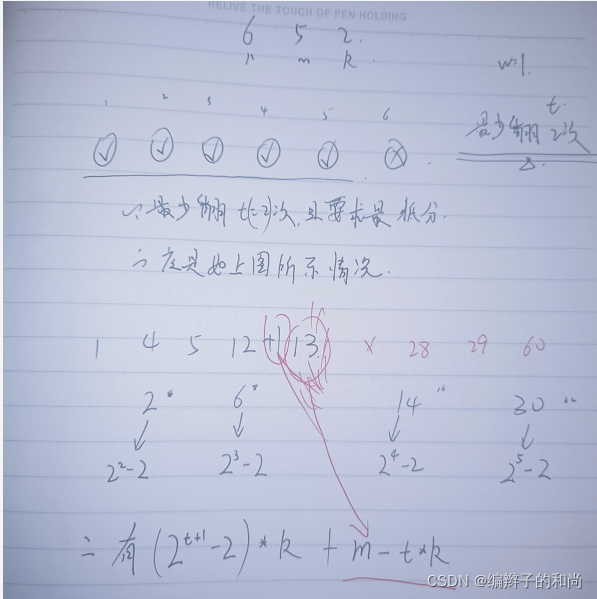 RELIVE THE TOUCH OF PEN HOLDING
6 5 2.
n m k.
w=1.
1 2 3 4 5 6
t.
最少翻 2次
∵ 最少翻 t(=2)次,且要求最低分.
∴ 应是如上图所示情况.
1 4 5 12 +1 13 x 28 29 60
2 6 14 30
2²-2 2³-2 2⁴-2 2⁵-2
∴ 有 (2^{t+1}-2)*k + m-t*k
CSDN @编辫子的和尚